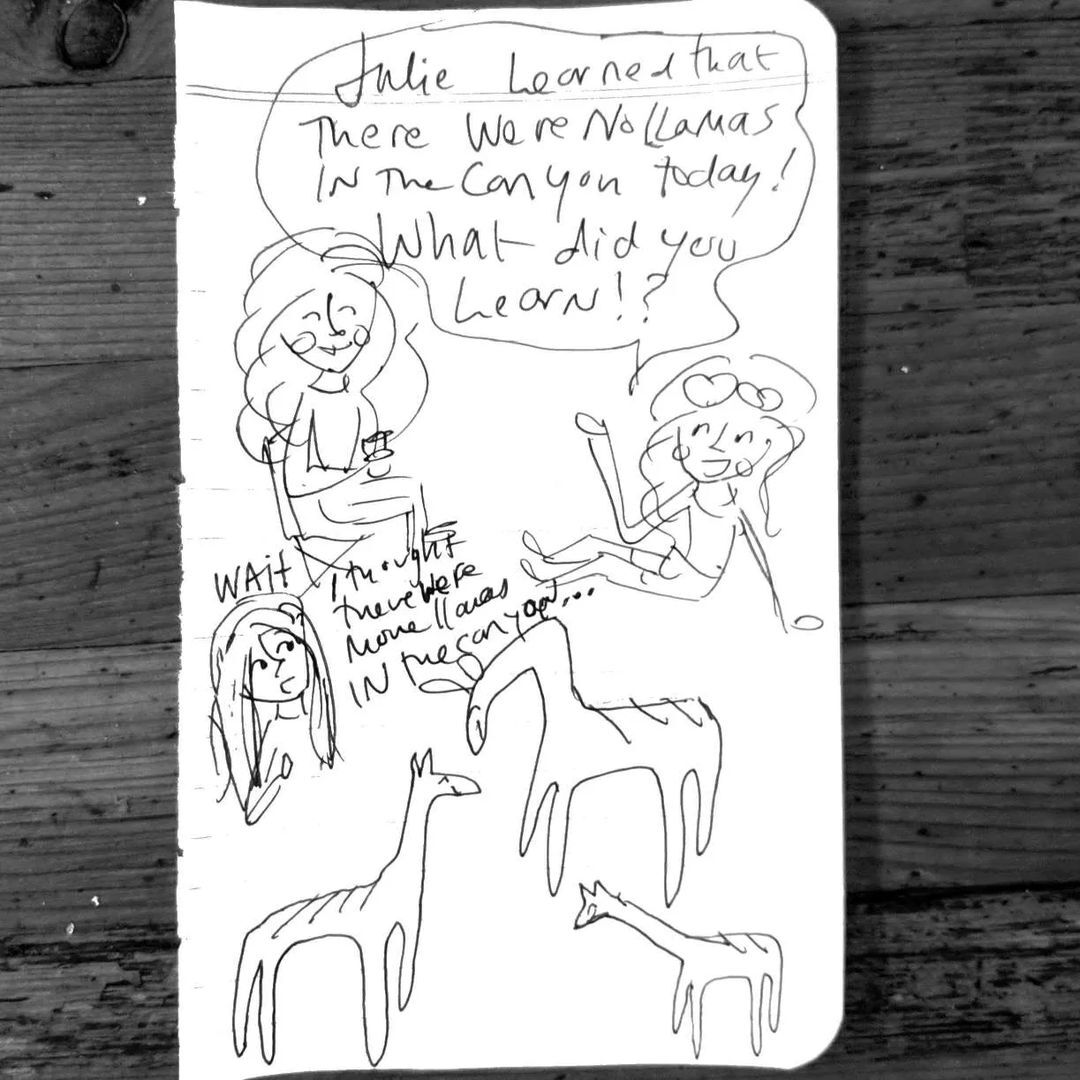 Julie Learned that
There Were No LLamas
IN The Canyon today!
What did you
Learn!?
WAit
I thought
there were
more llamas
IN the canyon...